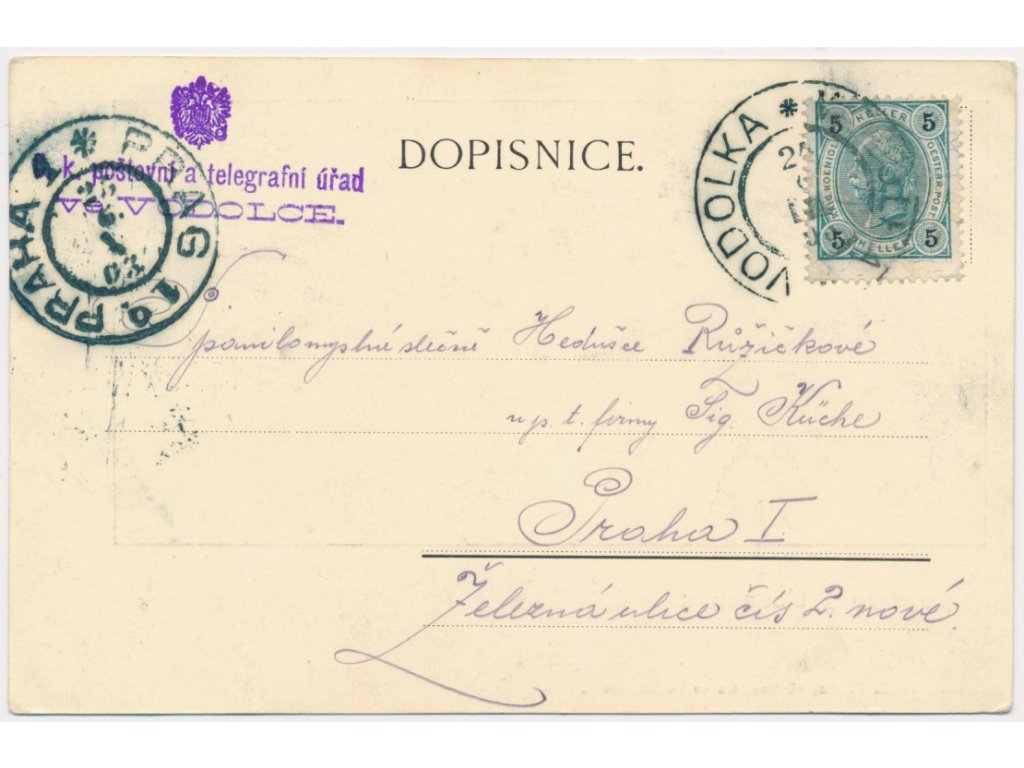 DOPISNICE.
C. k. poštovní a telegrafní úřad
ve VODOLCE.
PRAG 1 * PRAHA 1
VODOLKA *
5 HELLER 5
OESTERR. POST
5 HELLER 5
slečně Hedušce Růžičkové
u p. t. firmy Sig. Küche
Praha I.
Železná ulice čís 2. nové.